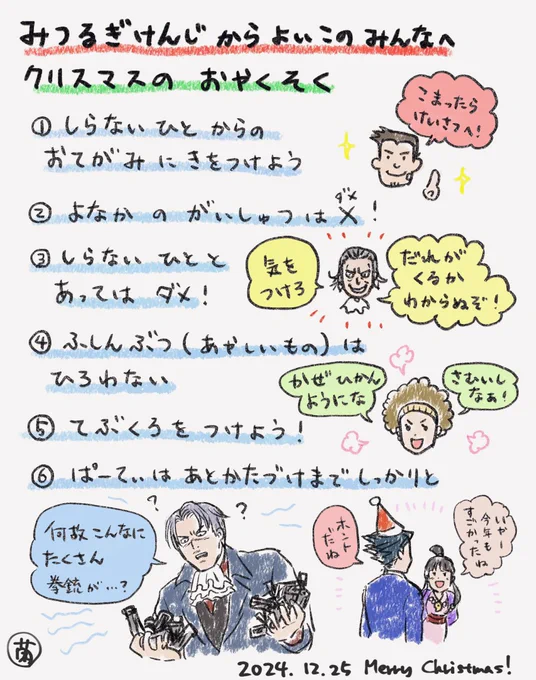 みつるぎけんじ から よいこの みんなへ
クリスマスの おやくそく
① しらないひと からの
おてがみ に きをつけよう
こまったら
けいさつへ!
② よなか の がいしゅつ は ダメ
X !
③ しらない ひと と
あっては ダメ!
気を
つけろ
だれが
くるか
わからぬぞ!
④ ふしんぶつ(あやしいもの)は
ひろわない
かぜ ひかん
ようにな
さむいし
なぁ!
⑤ てぶくろ を つけよう!
⑥ ぱーてぃは あとかたづけまで しっかりと
何故こんなに
たくさん
拳銃が…?
?
?
ホント
だね
いやー
今年も
すごかったね
2024.12.25 Merry Christmas!